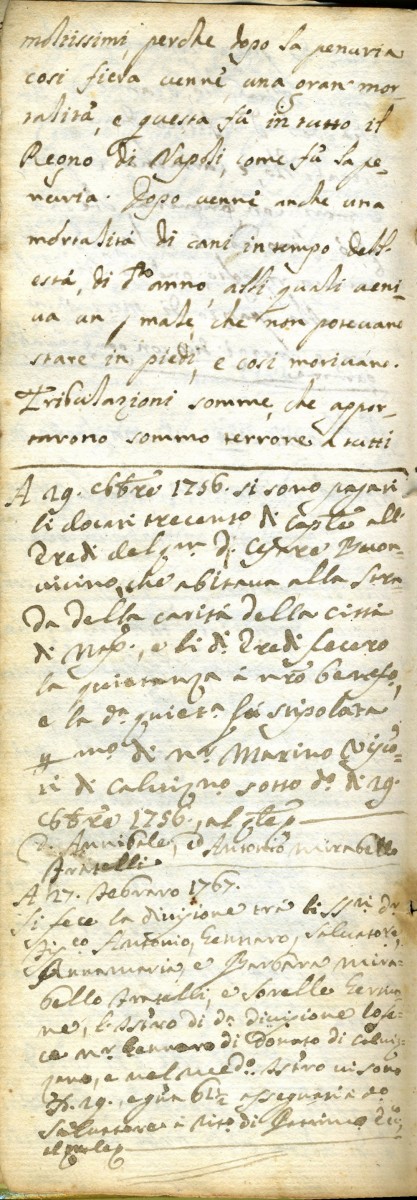 moltissimi, perche dopo la penuria
così fiera venne una gran mor-
talità, e questa fù in tutto il
Regno di Napoli, come fù la pe-
nuria. Dopo venne anche una
mortalità di cani in tempo dell'
està, di d.to anno, alli quali veni-
va un male, che non potevano
stare in piedi, e così morivano.
Tribulazioni somme, che appor-
tarono sommo terrore à tutti
A 29. 8bre 1756. si sono pagati
li docati trecento di caple all'
Eredi del qm. D. Cesare Buon-
vicino, che abitava alla stra-
da della carità della città
di Nap., e li d.i Eredi fecero
la quietanza à nro benefo,
e la d.a quiet.a fù stipolata
mo. di Nr. Marino
di di Calvizno sotto do. di 29.
8bre 1756.
D. Annibale, e D. Antonio Mirabello
Fratelli
A 27. Febraro 1767.
Si fece la divisione trà li
Antonio, Gennaro, Salvatore,
Annamaria, e Barbara Mira-
bello Fratelli, e Sorelle
ne, l'istro di da divisione lo fe-
ce Nr. Gennaro di Donato di Calviz-
zano, e nel medo. istro vi sono
29. e
Salvatore à di